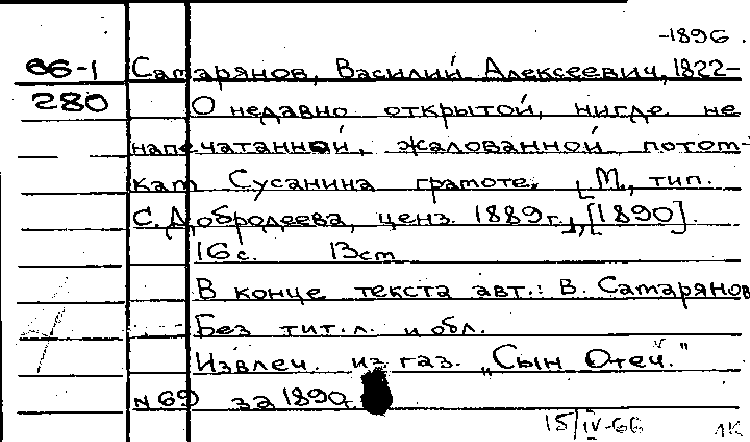 -1896.
66-1 Сатарянов, Василий Алексеевич, 1822-
280 О недавно открытой, нигде не
напечатанной, жалованной потом-
кам Сусанина грамоте. [М., тип.
С. Добродеева, ценз. 1889 г.], [1890].
16 с. 13 см
В конце текста авт.: В. Сатарянов
Без тит. л. и обл.
Извлеч. из газ. „Сын Отеч."
N 69 за 1890
15/IV-66 1К